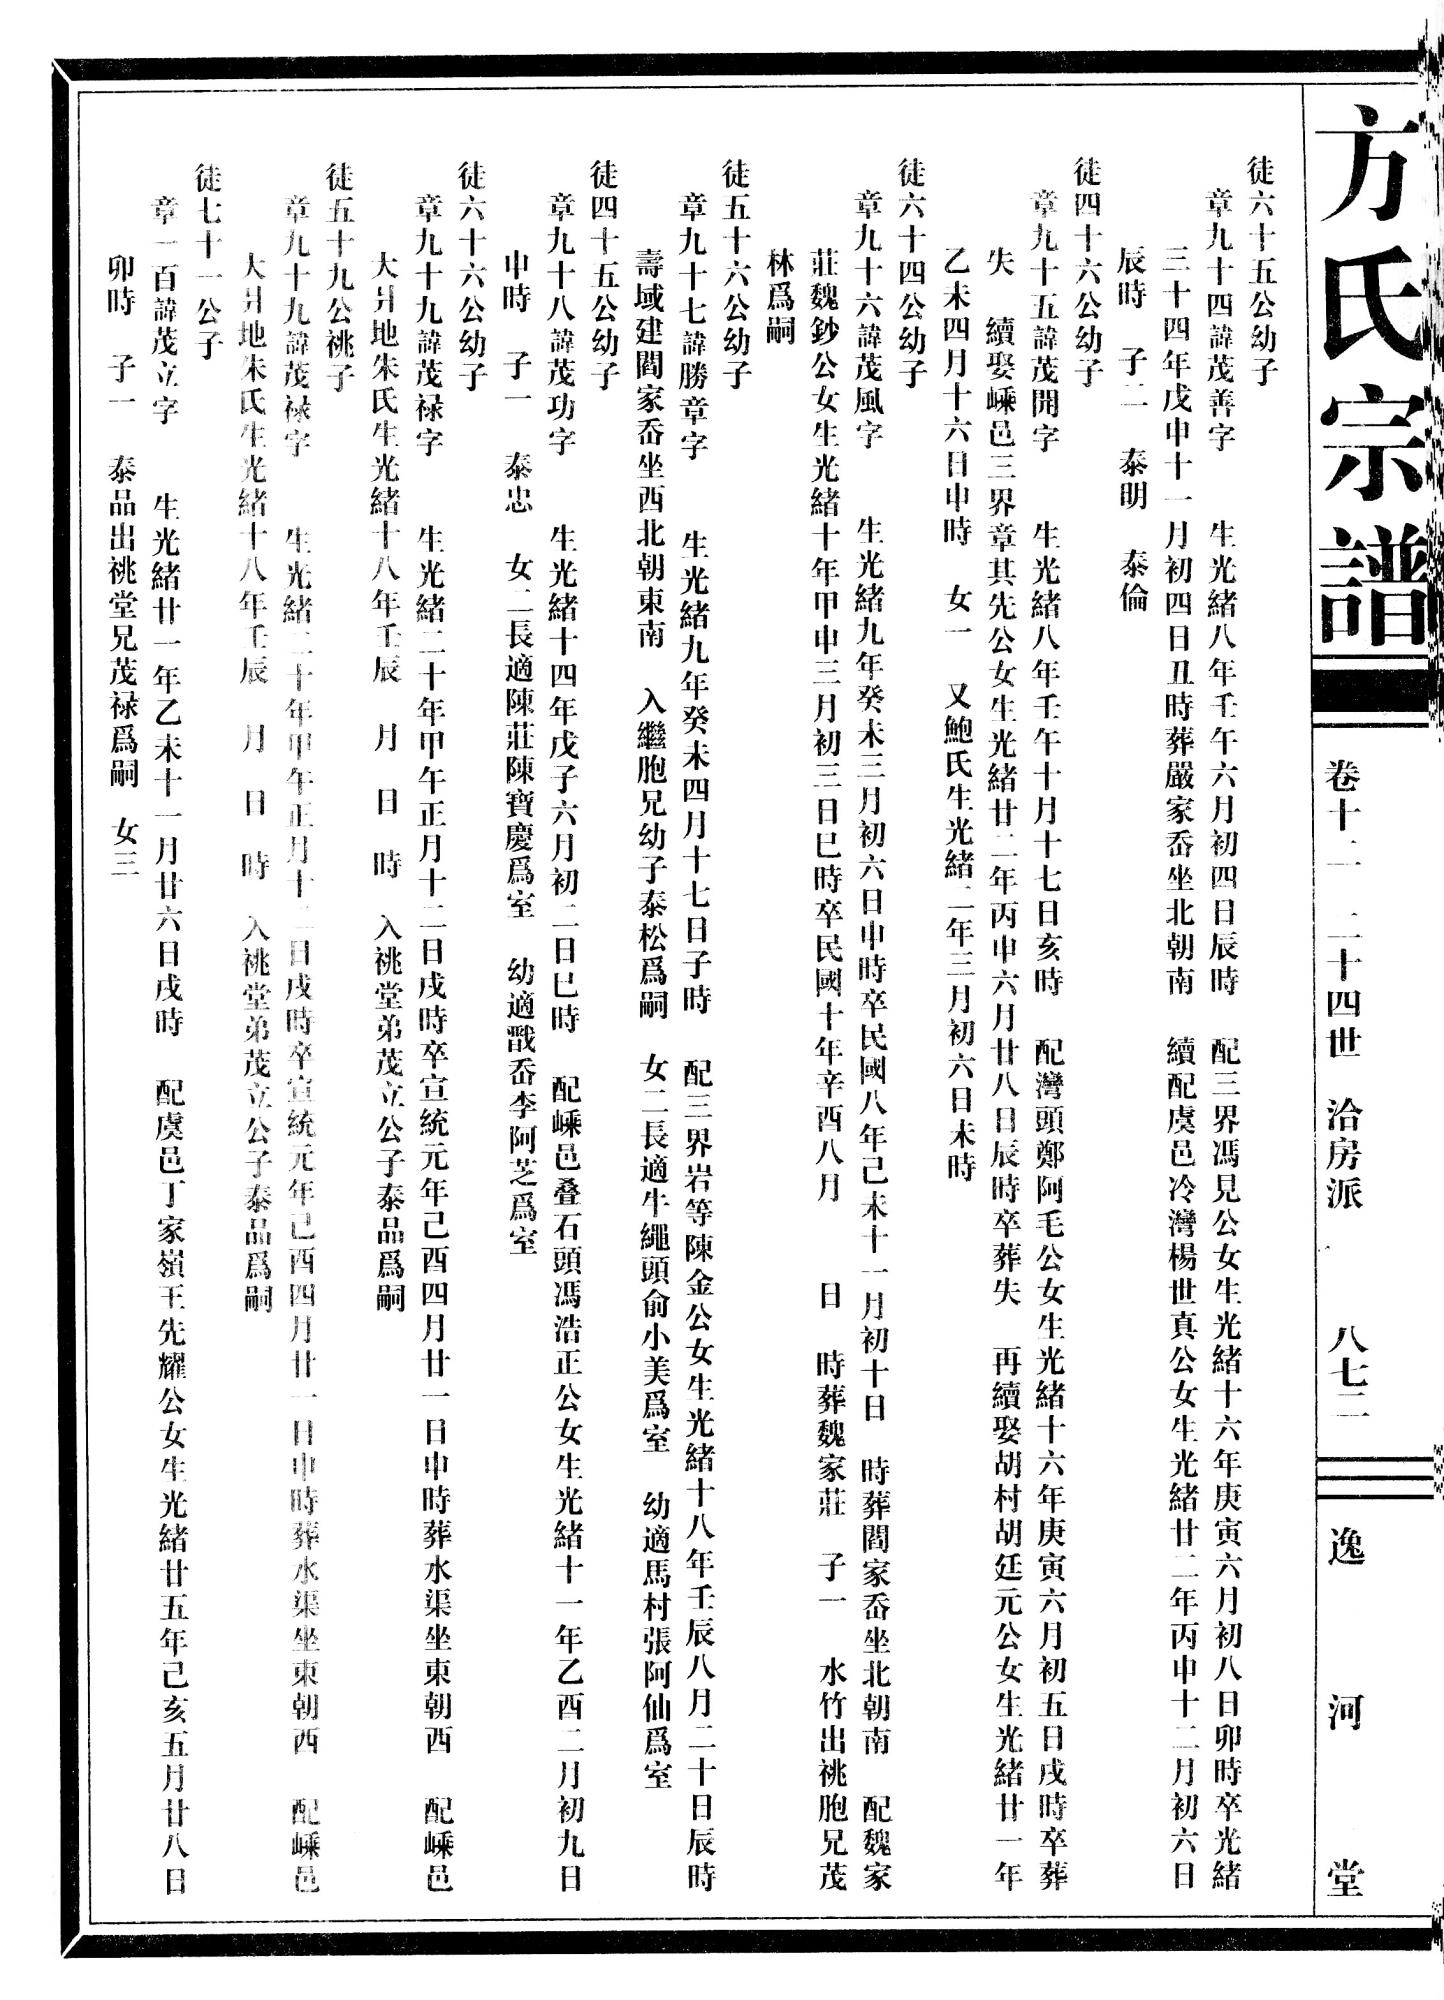 方氏宗譜
卷十二　二十四世　洽房派　八七二
逸河堂
徒六十五公幼子
章九十四諱茂善字　生光緒八年壬午六月初四日辰時　配三界馮見公女生光緒十六年庚寅六月初八日卯時卒光緒
三十四年戊申十一月初四日丑時葬嚴家岙坐北朝南　續配虞邑冷灣楊世真公女生光緒廿二年丙申十二月初六日
辰時　子二　泰明　泰倫
徒四十六公幼子
章九十五諱茂開字　生光緒八年壬午十月十七日亥時　配灣頭鄭阿毛公女生光緒十六年庚寅六月初五日戌時卒葬
失　續娶嵊邑三界章其先公女生光緒廿二年丙申六月廿八日辰時卒葬失　再續娶胡村胡廷元公女生光緒廿一年
乙未四月十六日申時　女一　又鮑氏生光緒二年三月初六日未時
徒六十四公幼子
章九十六諱茂風字　生光緒九年癸未三月初六日申時卒民國八年己未十一月初十日　時葬閻家岙坐北朝南　配魏家
莊魏鈔公女生光緒十年甲申三月初三日巳時卒民國十年辛酉八月　日　時葬魏家莊　子一　水竹出祧胞兄茂
林爲嗣
徒五十六公幼子
章九十七諱勝章字　生光緒九年癸未四月十七日子時　配三界岩等陳金公女生光緒十八年壬辰八月二十日辰時
壽域建閻家岙坐西北朝東南　入繼胞兄幼子泰松爲嗣　女二長適牛繩頭俞小美爲室　幼適馬村張阿仙爲室
徒四十五公幼子
章九十八諱茂功字　生光緒十四年戊子六月初二日巳時　配嵊邑叠石頭馮浩正公女生光緒十一年乙酉二月初九日
申時　子一　泰忠　女二長適陳莊陳寶慶爲室　幼適戬岙李阿芝爲室
徒六十六公幼子
章九十九諱茂禄字　生光緒二十年甲午正月十二日戌時卒宣統元年己酉四月廿一日申時葬水渠坐東朝西　配嵊邑
大爿地朱氏生光緒十八年壬辰　月　日　時　入祧堂弟茂立公子泰品爲嗣
徒五十九公祧子
章九十九諱茂禄字　生光緒二十年甲午正月十二日戌時卒宣統元年己酉四月廿一日申時葬水渠坐東朝西　配嵊邑
大爿地朱氏生光緒十八年壬辰　月　日　時　入祧堂弟茂立公子泰品爲嗣
徒七十一公子
章一百諱茂立字　生光緒廿一年乙未十一月廿六日戌時　配虞邑丁家嶺王先耀公女生光緒廿五年己亥五月廿八日
卯時　子一　泰品出祧堂兄茂禄爲嗣　女三